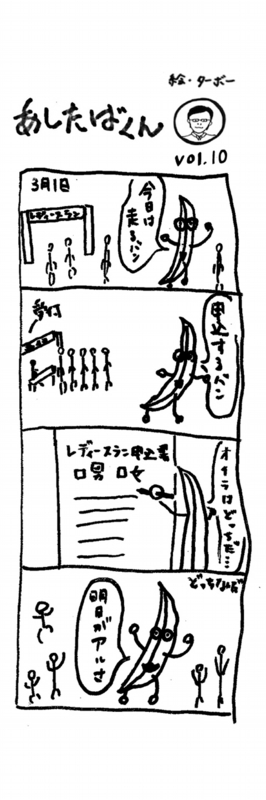 絵・ターボー
あしたばくん
vol.10
3月1日
レディースラン
今日は
走るバン
受付
申込するバン
レディースラン申込書
□男 □女
オイラは
どっちだ…
明日が
アルさ